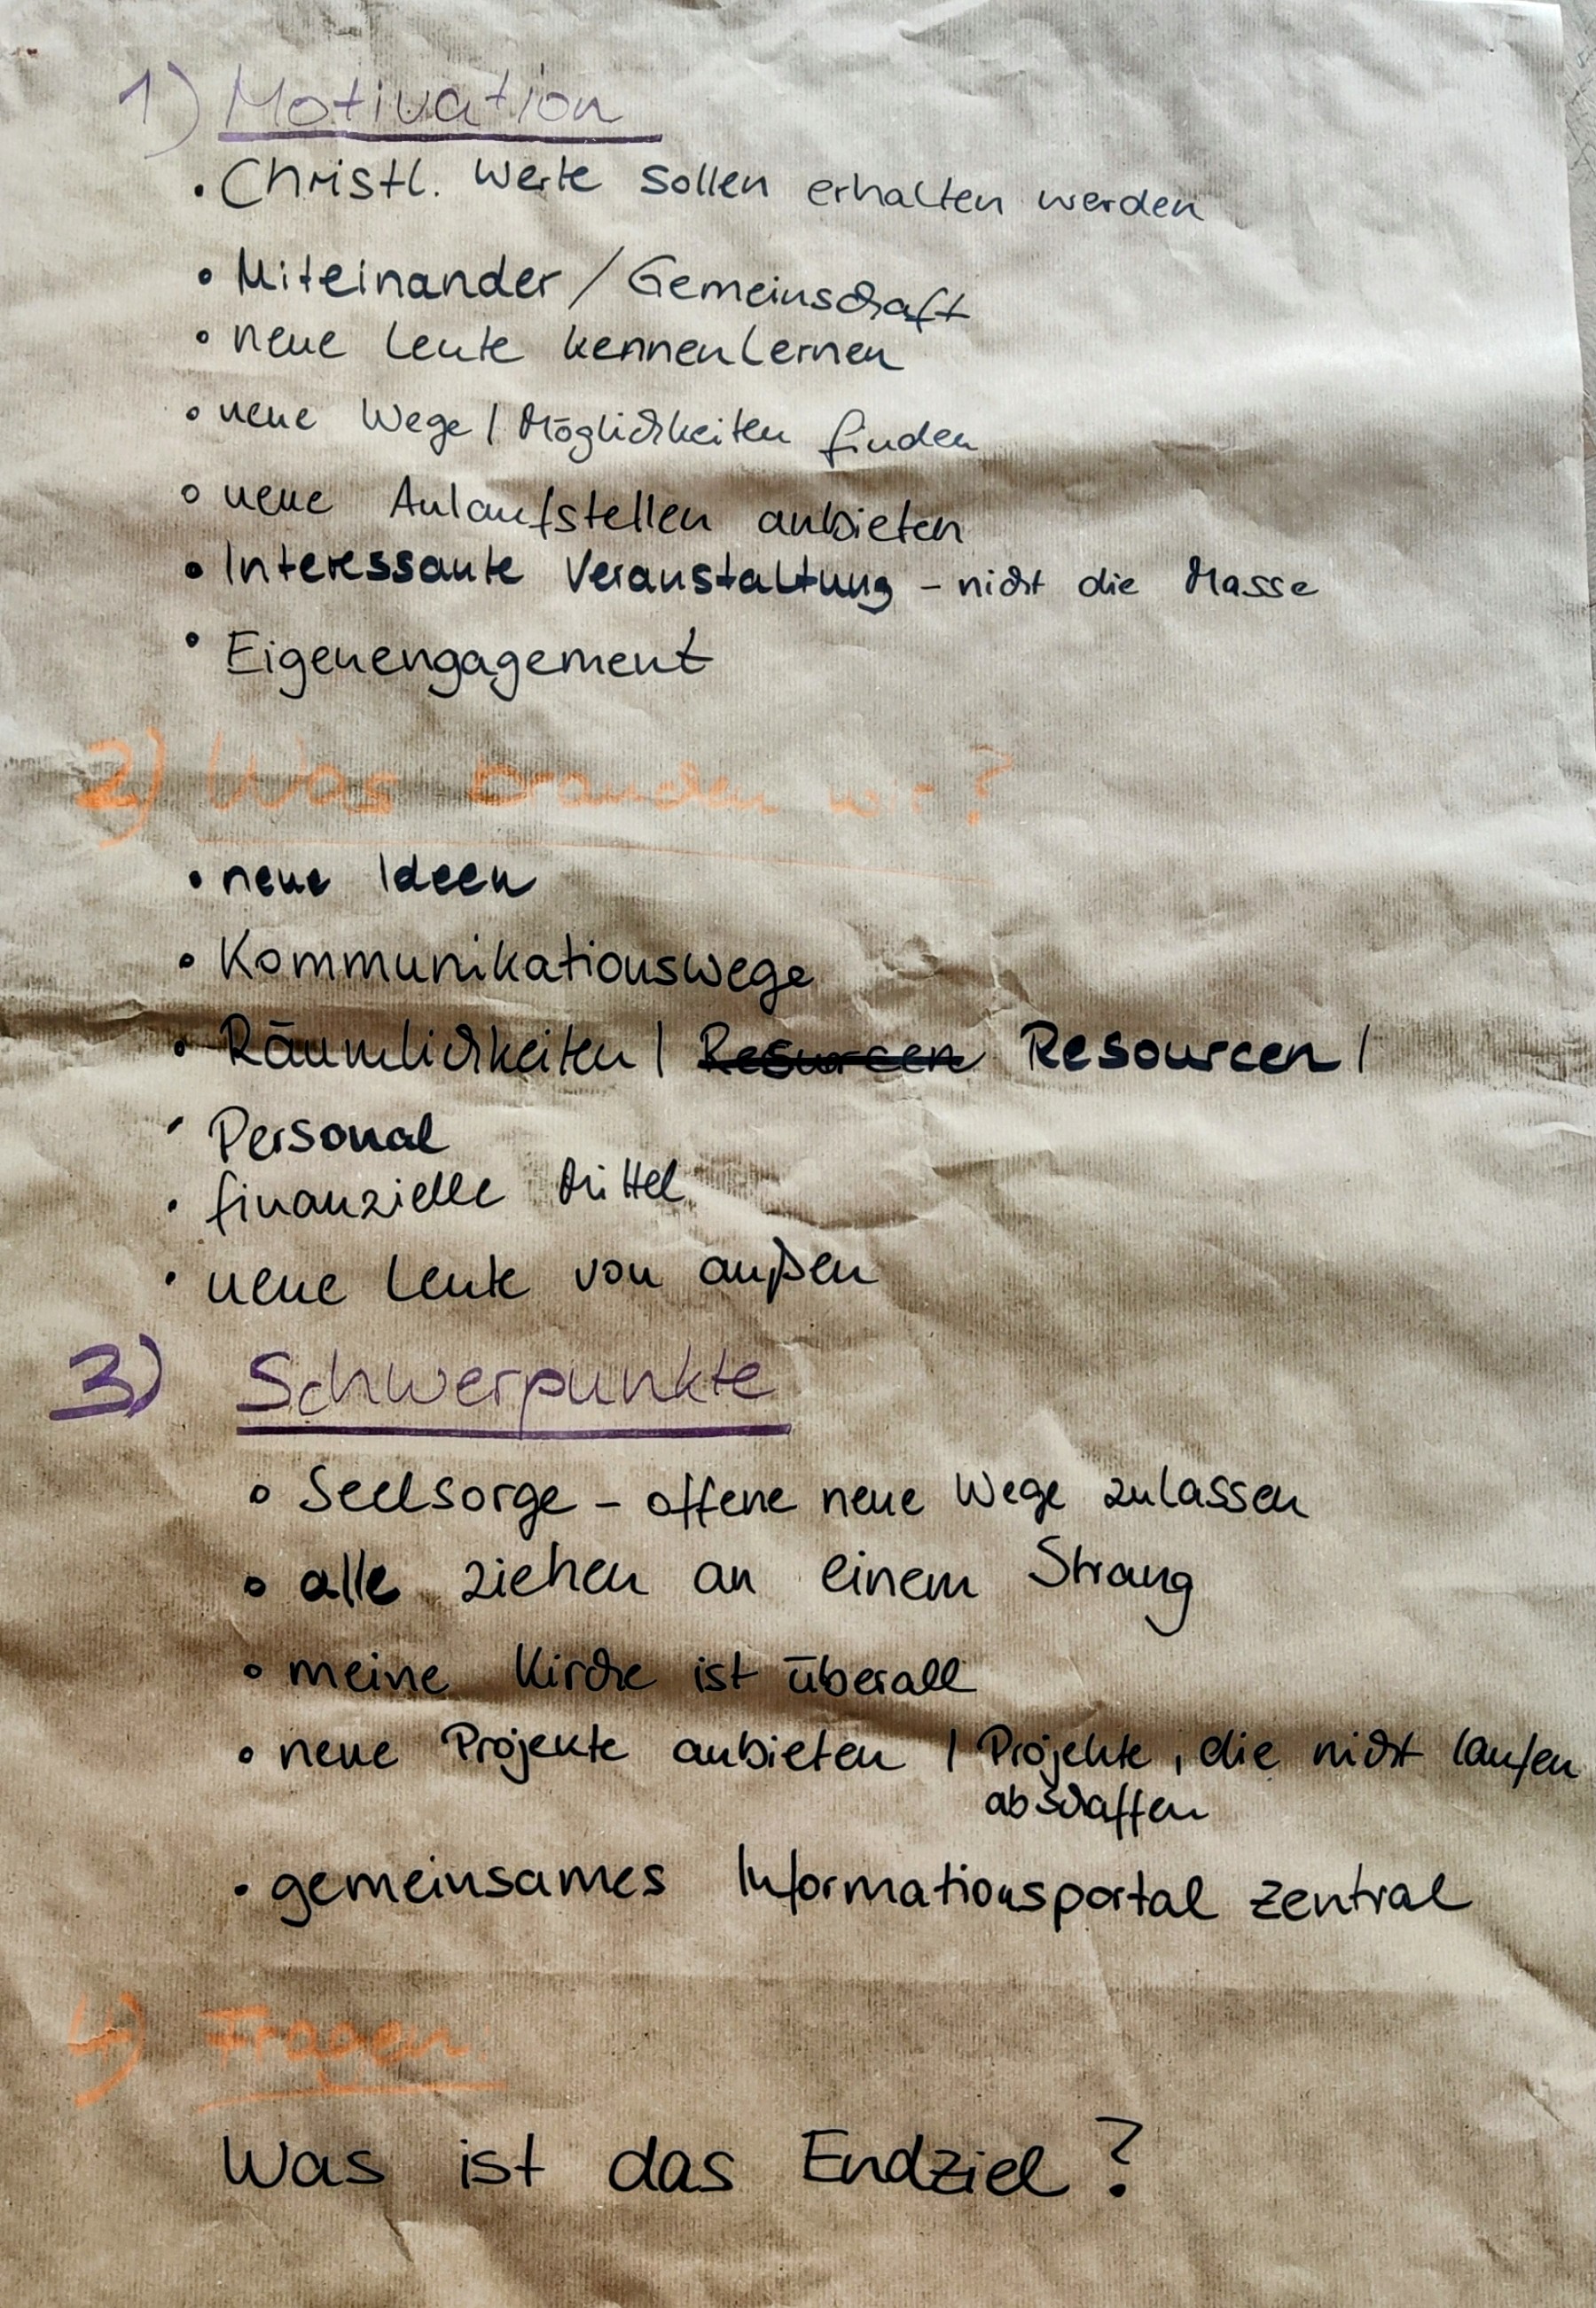 1) Motivation
• Christl. Werte sollen erhalten werden
• Miteinander / Gemeinschaft
• neue Leute kennenlernen
• neue Wege / Möglichkeiten finden
• neue Anlaufstellen anbieten
• Interessante Veranstaltung - nicht die Masse
• Eigenengagement
2) Was brauchen wir?
• neue Ideen
• Kommunikationswege
• Räumlichkeiten / Resurcen Resourcen /
• Personal
• finanzielle Mittel
• neue Leute von außen
3) Schwerpunkte
• Seelsorge - offene neue Wege zulassen
• alle ziehen an einem Strang
• meine Kirche ist überall
• neue Projekte anbieten / Projekte, die nicht laufen
abschaffen
• gemeinsames Informationsportal zentral
4) Fragen:
Was ist das Endziel?